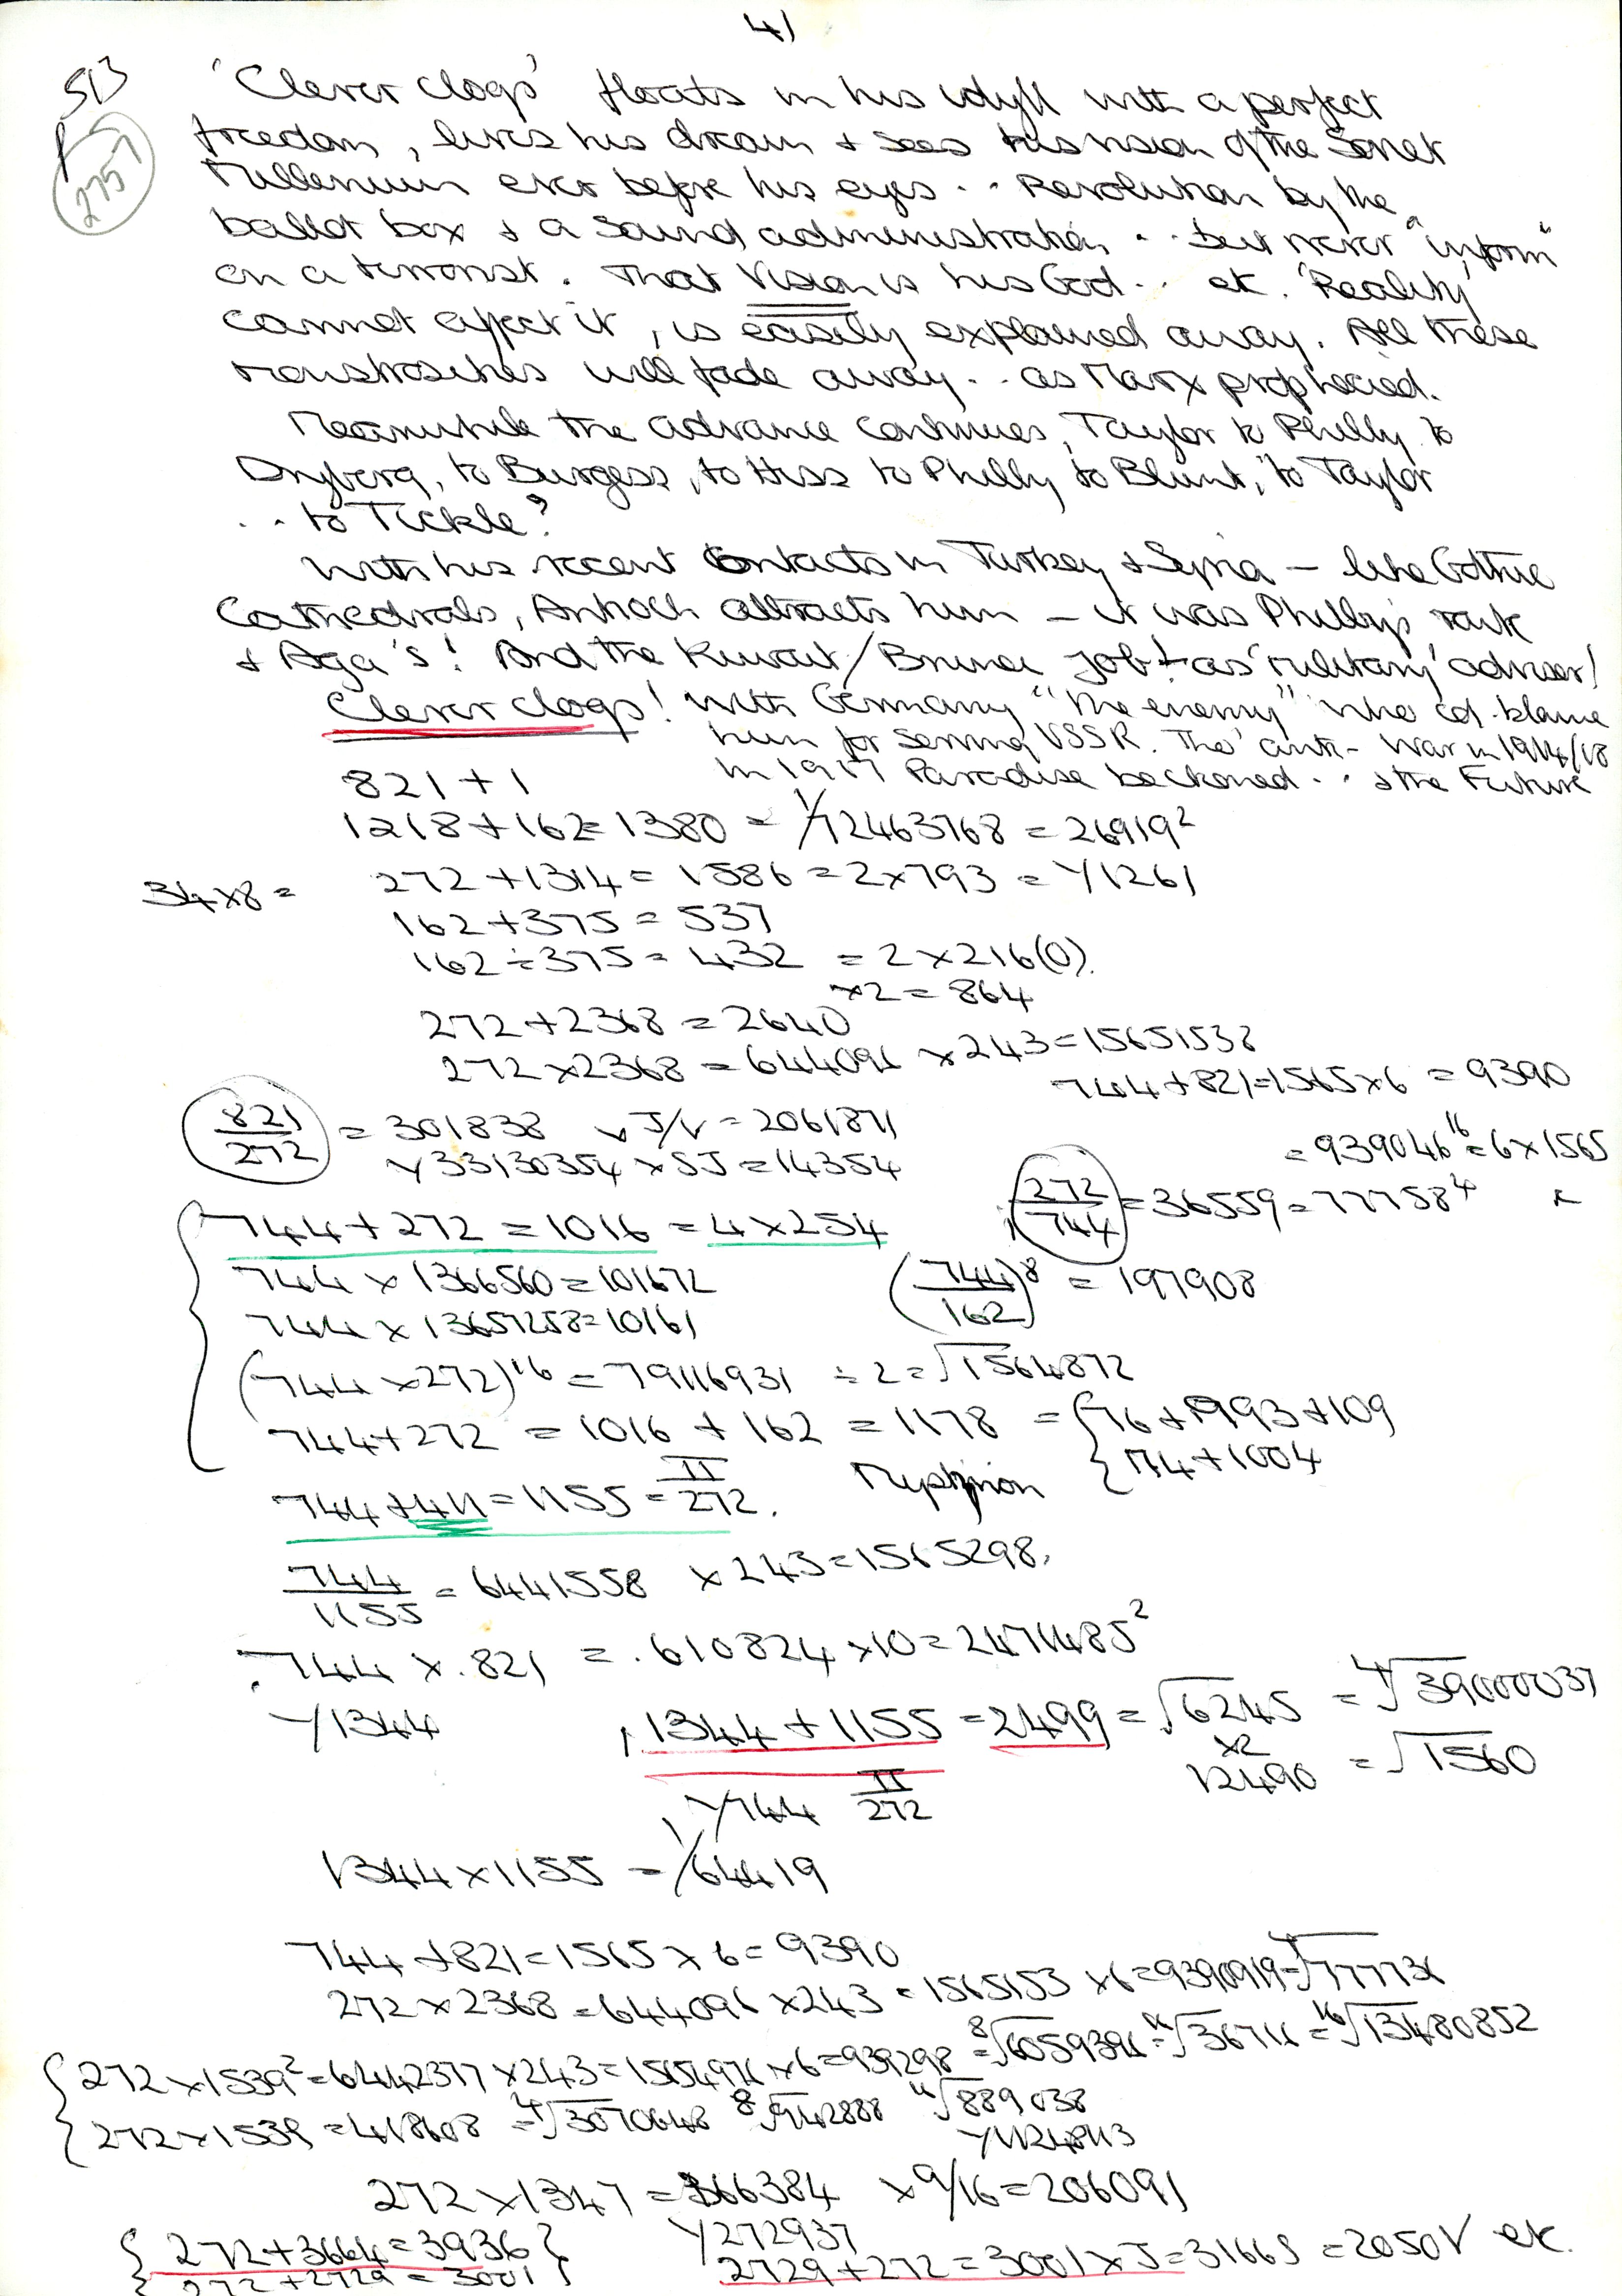 41
513
p
2757
'Clever clogs' floats in his idyll with a perfect
freedom, lives his dream + sees his vision of the Soviet
Millenium ever before his eyes .. Revolution by the
ballot box + a sound administration .. but never "inform"
on a terrorist. That Vision is his God .. etc. 'Reality'
cannot affect it, is easily explained away. All these
monstrosities will fade away .. as Marx prophecied.
Meanwhile the advance continues, Taylor to Philby to
Dryberg, to Burgess, to Hiss to Philby to Blunt, to Taylor
.. to Tickle?
With his recent contacts in Turkey + Syria – like Gothic
Cathedrals, Antioch attracts him – it was Philby's rank
+ Aga's! And the Kuwait/Brunei job! – as 'military' adviser!
Clever clogs! With Germany "the enemy" who cd. blame
him for serving USSR. The anti- War in 1914/18
In 1917 Paradise beckoned .. + the Future
821 + 1
1218 + 162 = 1380 = 1/72463768 = 26919²
34 x 8 = 272 + 1314 = 1586 = 2 x 793 = Y1261
162 + 375 = 537
162 ÷ 375 = 432 = 2 x 216(0)
x 2 = 864
272 + 2368 = 2640
272 x 2368 = 644096 x 243 = 15651538
744 + 821 = 1565 x 6 = 9390
821/272 = 301838 v J/V = 2061871
Y33130354 x 5J = 14354
= 939046¹⁶ = 6 x 1565
272/744 = 36559 = 77758⁴
744 + 272 = 1016 = 4 x 254
744 x 1366560 = 101672
(744/162)⁸ = 197908
744 x 13657258 = 10161
(744 x 272)¹⁶ = 79116931 ÷ 2 = √1564872
744 + 272 = 1016 + 162 = 1178 = { 76 + 993 + 109
174 + 1004
744 + 411 = 1155 = π/272.
744/1155 = 6441558 x 243 = 1565298.
.744 x .821 = .610824 x 10 = 2471485²
Y1344
1344 + 1155 = 2499 = √6245 = ⁴√39000037
x2
12490 = √1560
Y744 π/272
1344 x 1155 = 1/64419
744 + 821 = 1565 x 6 = 9390
272 x 2368 = 644096 x 243 = 1565153 x 6 = 9390919 = √777736
272 x 1539² = 6442377 x 243 = 1565497 x 6 = 939298 = ⁸√6059396 = √36711 = ¹⁶√13480852
272 x 1539 = 418608 = ⁴√3070648 ⁸√942888 √889038
272 x 1347 = 366384 x 9/16 = 206091
Y272937
272 + 3664 = 3936
2729 + 272 = 3001 x J = 31665 = 2050V etc.
272 + 2729 = 3001